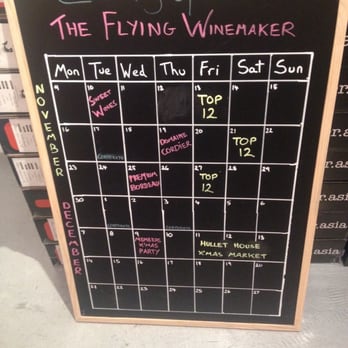 THE FLYING WINEMAKER
Mon Tue Wed Thu Fri Sat Sun
NOVEMBER
9 10 11 12 13 14 15
SWEET
WINES
TOP
12
16 17 18 19 20 21 22
DOMAINE
CORDIER
TOP
12
23 24 25 26 27 28 29
PREMIUM
BORDEAUX
TOP
12
DECEMBER
30 1 2 3 4 5 6
7 8 9 10 11 12 13
MEMBERS
X'MAS
PARTY
HULLET HOUSE
X'MAS MARKET
14 15 16 17 18 19 20
21 22 23 24 25 26 27
r.asia